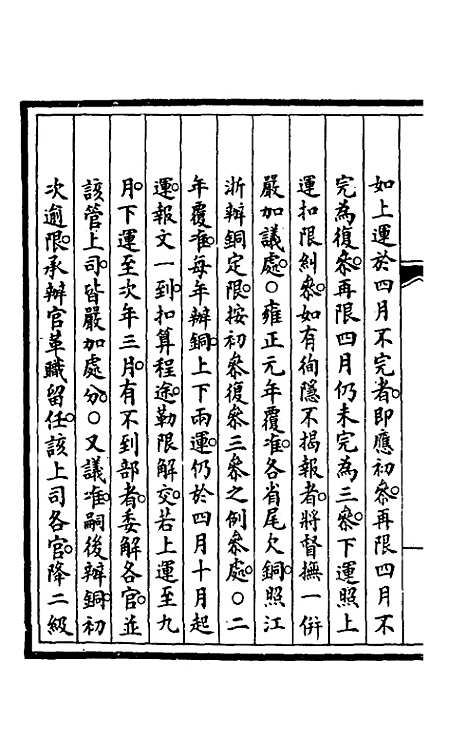 如上運於四月不完者。即應初參。再限四月不
完為復參。再限四月仍未完為三參。下運照上
運扣限糾參。如有徇隱不揭報者。將督撫一併
嚴加議處。○雍正元年覆准。各省尾欠銅。照江
浙辦銅定限。按初參復參三參之例參處。○二
年覆准。每年辦銅。上下兩運。仍於四月十月起
運。報文一到。扣算程途。勒限解交。若上運至九
月。下運至次年三月。有不到部者。委解各官。並
該管上司。皆嚴加處分。○又議准。嗣後辦銅。初
次逾限。承辦官革職留任。該上司各官。降二級